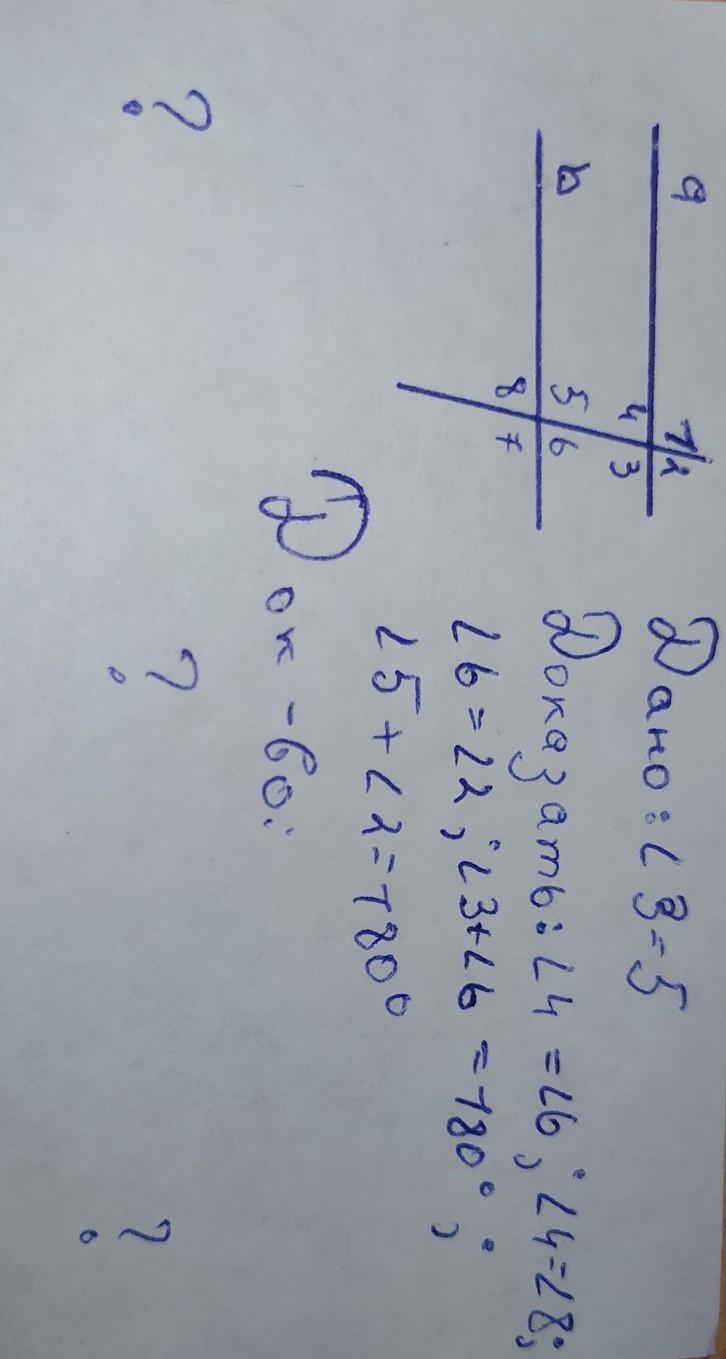 a
1 2
4 3
b
5 6
8 7
Дано: ∠3=5
Доказать: ∠4 =∠6; ∠4=∠8;
∠6=∠2; ∠3+∠6 =180°;
∠5+∠2=180°
Док-во:
? ? ?